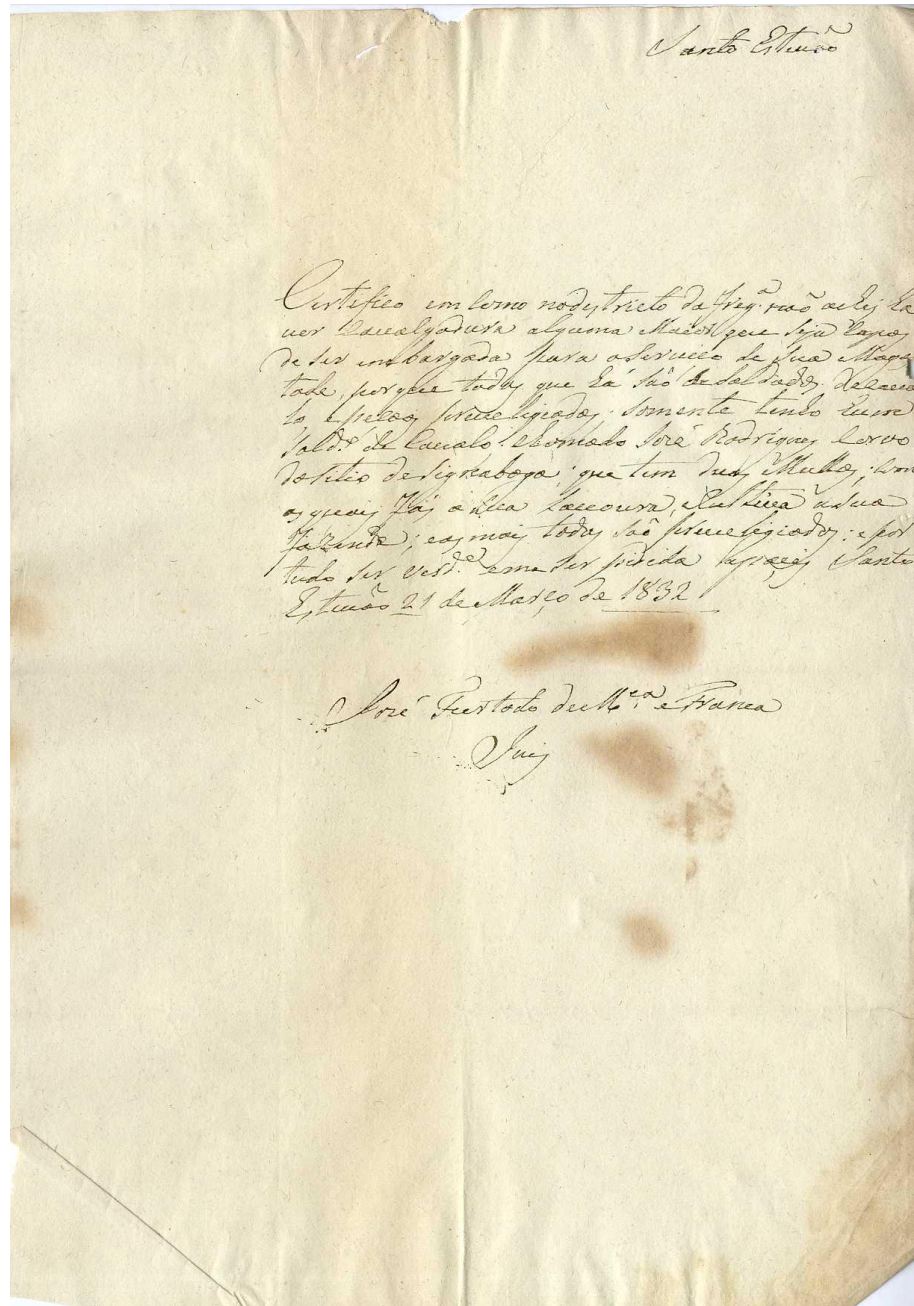 Santo Estevão
Certifico em como nodystricto da Freg.ª não achey ha
ver Cavalgadura alguma Maior que seja Capas
de ser embargada para oservico de Sua Mages
tade, porque todas que há são de soldados decava
lo e peçoas previligiadas. somente tenho hum
Sold.º de Cavalo chomado José Rodrigues Corvo
dositio de que tem duas Mullas, com
as quais Fás a sua Lavoura, Cultiva asua
Fazenda; eas mais todas são previligiadas; e por
tudo ser verd.e eme ser pidida apacey Santo
Estevão 21 de Março de 1832
José Furtado de M.ça e Franca
Juis